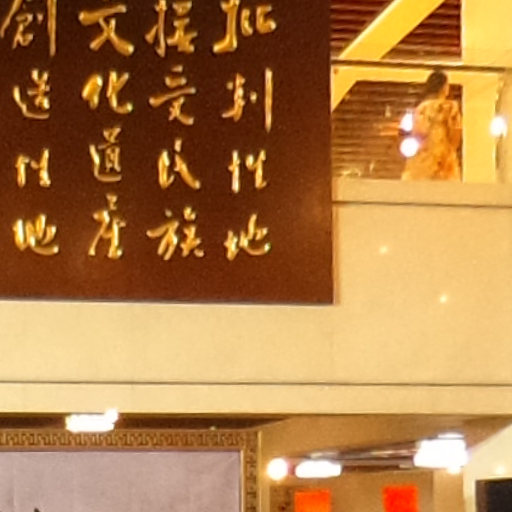 批判性地
接受民族
文化遺產
創造性地